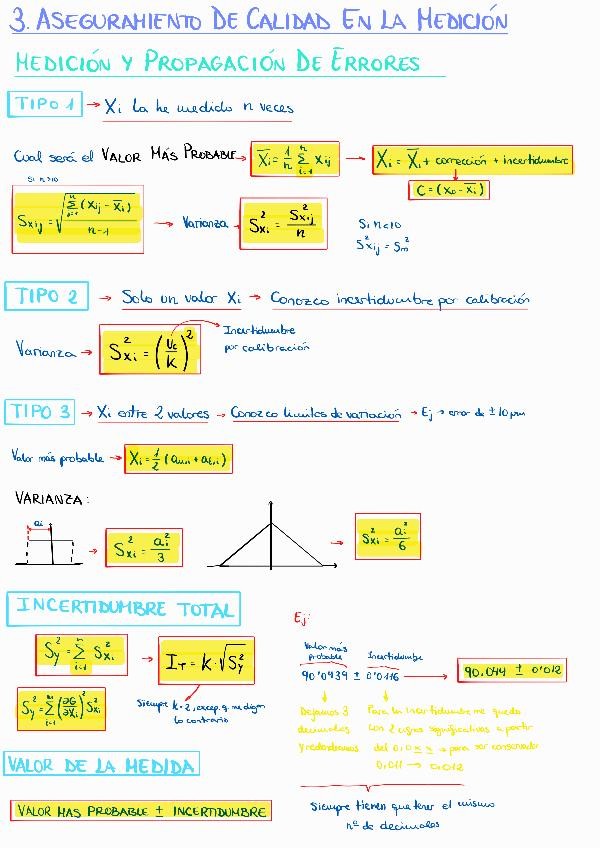 3. ASEGURAMIENTO DE CALIDAD EN LA MEDICIÓN
MEDICIÓN Y PROPAGACIÓN DE ERRORES
TIPO 1 → Xi la he medido n veces
Cual será el VALOR MÁS PROBABLE → X̄i = 1/n Σ(i=1..n) Xij → Xi = X̄i + corrección + incertidumbre
C = (x0 - X̄i)
Si n>10
Sxij = √(Σ(j=1..n) (Xij - X̄i) / (n-1)) → Varianza S²xi = S²xij / n
Si n<10
S²xij = S²m
TIPO 2 → Solo un valor Xi → Conozco incertidumbre por calibración
Varianza → S²xi = (Uc/K)²
Incertidumbre
por calibración
TIPO 3 → Xi entre 2 valores → Conozco límites de variación → Ej → error de ± 10 μm
Valor más probable → Xi = 1/2 (au,i + al,i)
VARIANZA:
ai
→ S²xi = ai²/3
→ S²xi = ai²/6
INCERTIDUMBRE TOTAL
S²y = Σ(i=1..n) S²xi → IT = K · √S²y
S²y = Σ(i=1..n) (∂G/∂Xi)² S²xi
Siempre k=2, excep. q. me digan
lo contrario
VALOR DE LA MEDIDA
VALOR MAS PROBABLE ± INCERTIDUMBRE
Ej:
Valor más probable
Incertidumbre
90'0439 ± 0'0116 → 90.044 ± 0'012
Dejamos 3
decimales
y redondeamos
Para la incertidumbre me quedo
con 2 cifras significativas a partir
del 0,0xx → para ser conservador
0,011 → 0,012
Siempre tienen que tener el mismo
nº de decimales